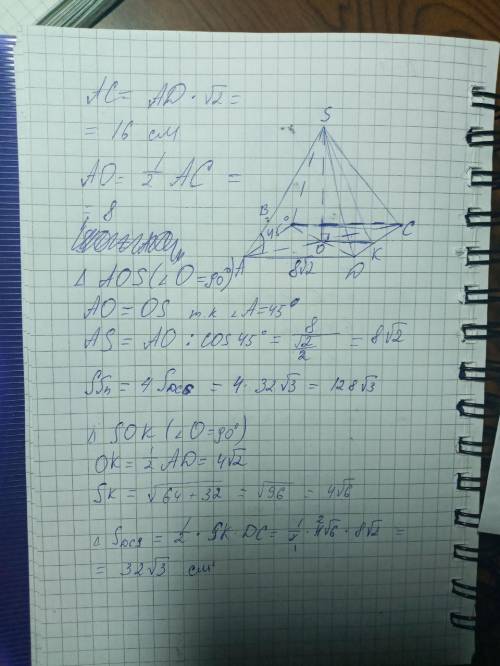 AC = AD · √2 =
= 16 см
AO = 1/2 AC =
= 8
S
B
45°
A
O
C
K
D
8√2
Δ AOS (∠O = 90°)
AO = OS т к ∠A = 45°
AS = AO : cos 45° = 8/(√2/2) = 8√2
Sбп = 4 S = 4 · 32√3 = 128√3
Δ SOK (∠O = 90°)
OK = 1/2 AD = 4√2
SK = √(64 + 32) = √96 = 4√6
Δ S = 1/2 · SK · DC = 1/2 · 4√6 · 8√2 =
= 32√3 см